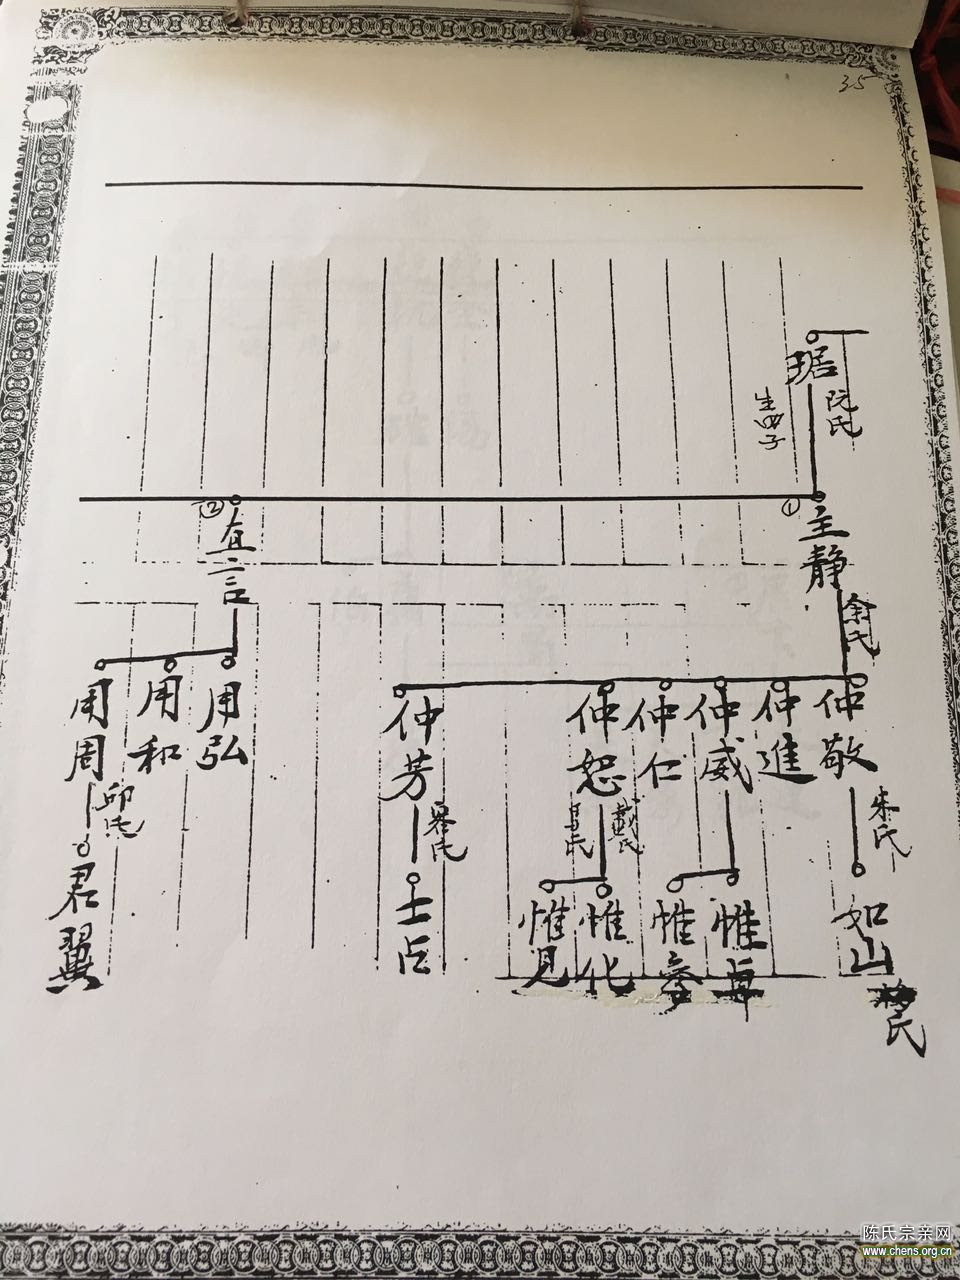 35
琚
阮氏
生四子
①
主静
余氏
②
直言
仲敬
朱氏
仲進
仲威
仲仁
仲恕
戴氏
吕氏
仲芳
用弘
用和
用周
邱氏
如山
氏
惟卓
惟參
惟化
惟见
士臣
君翼
陈氏宗亲网
www.chens.org.cn